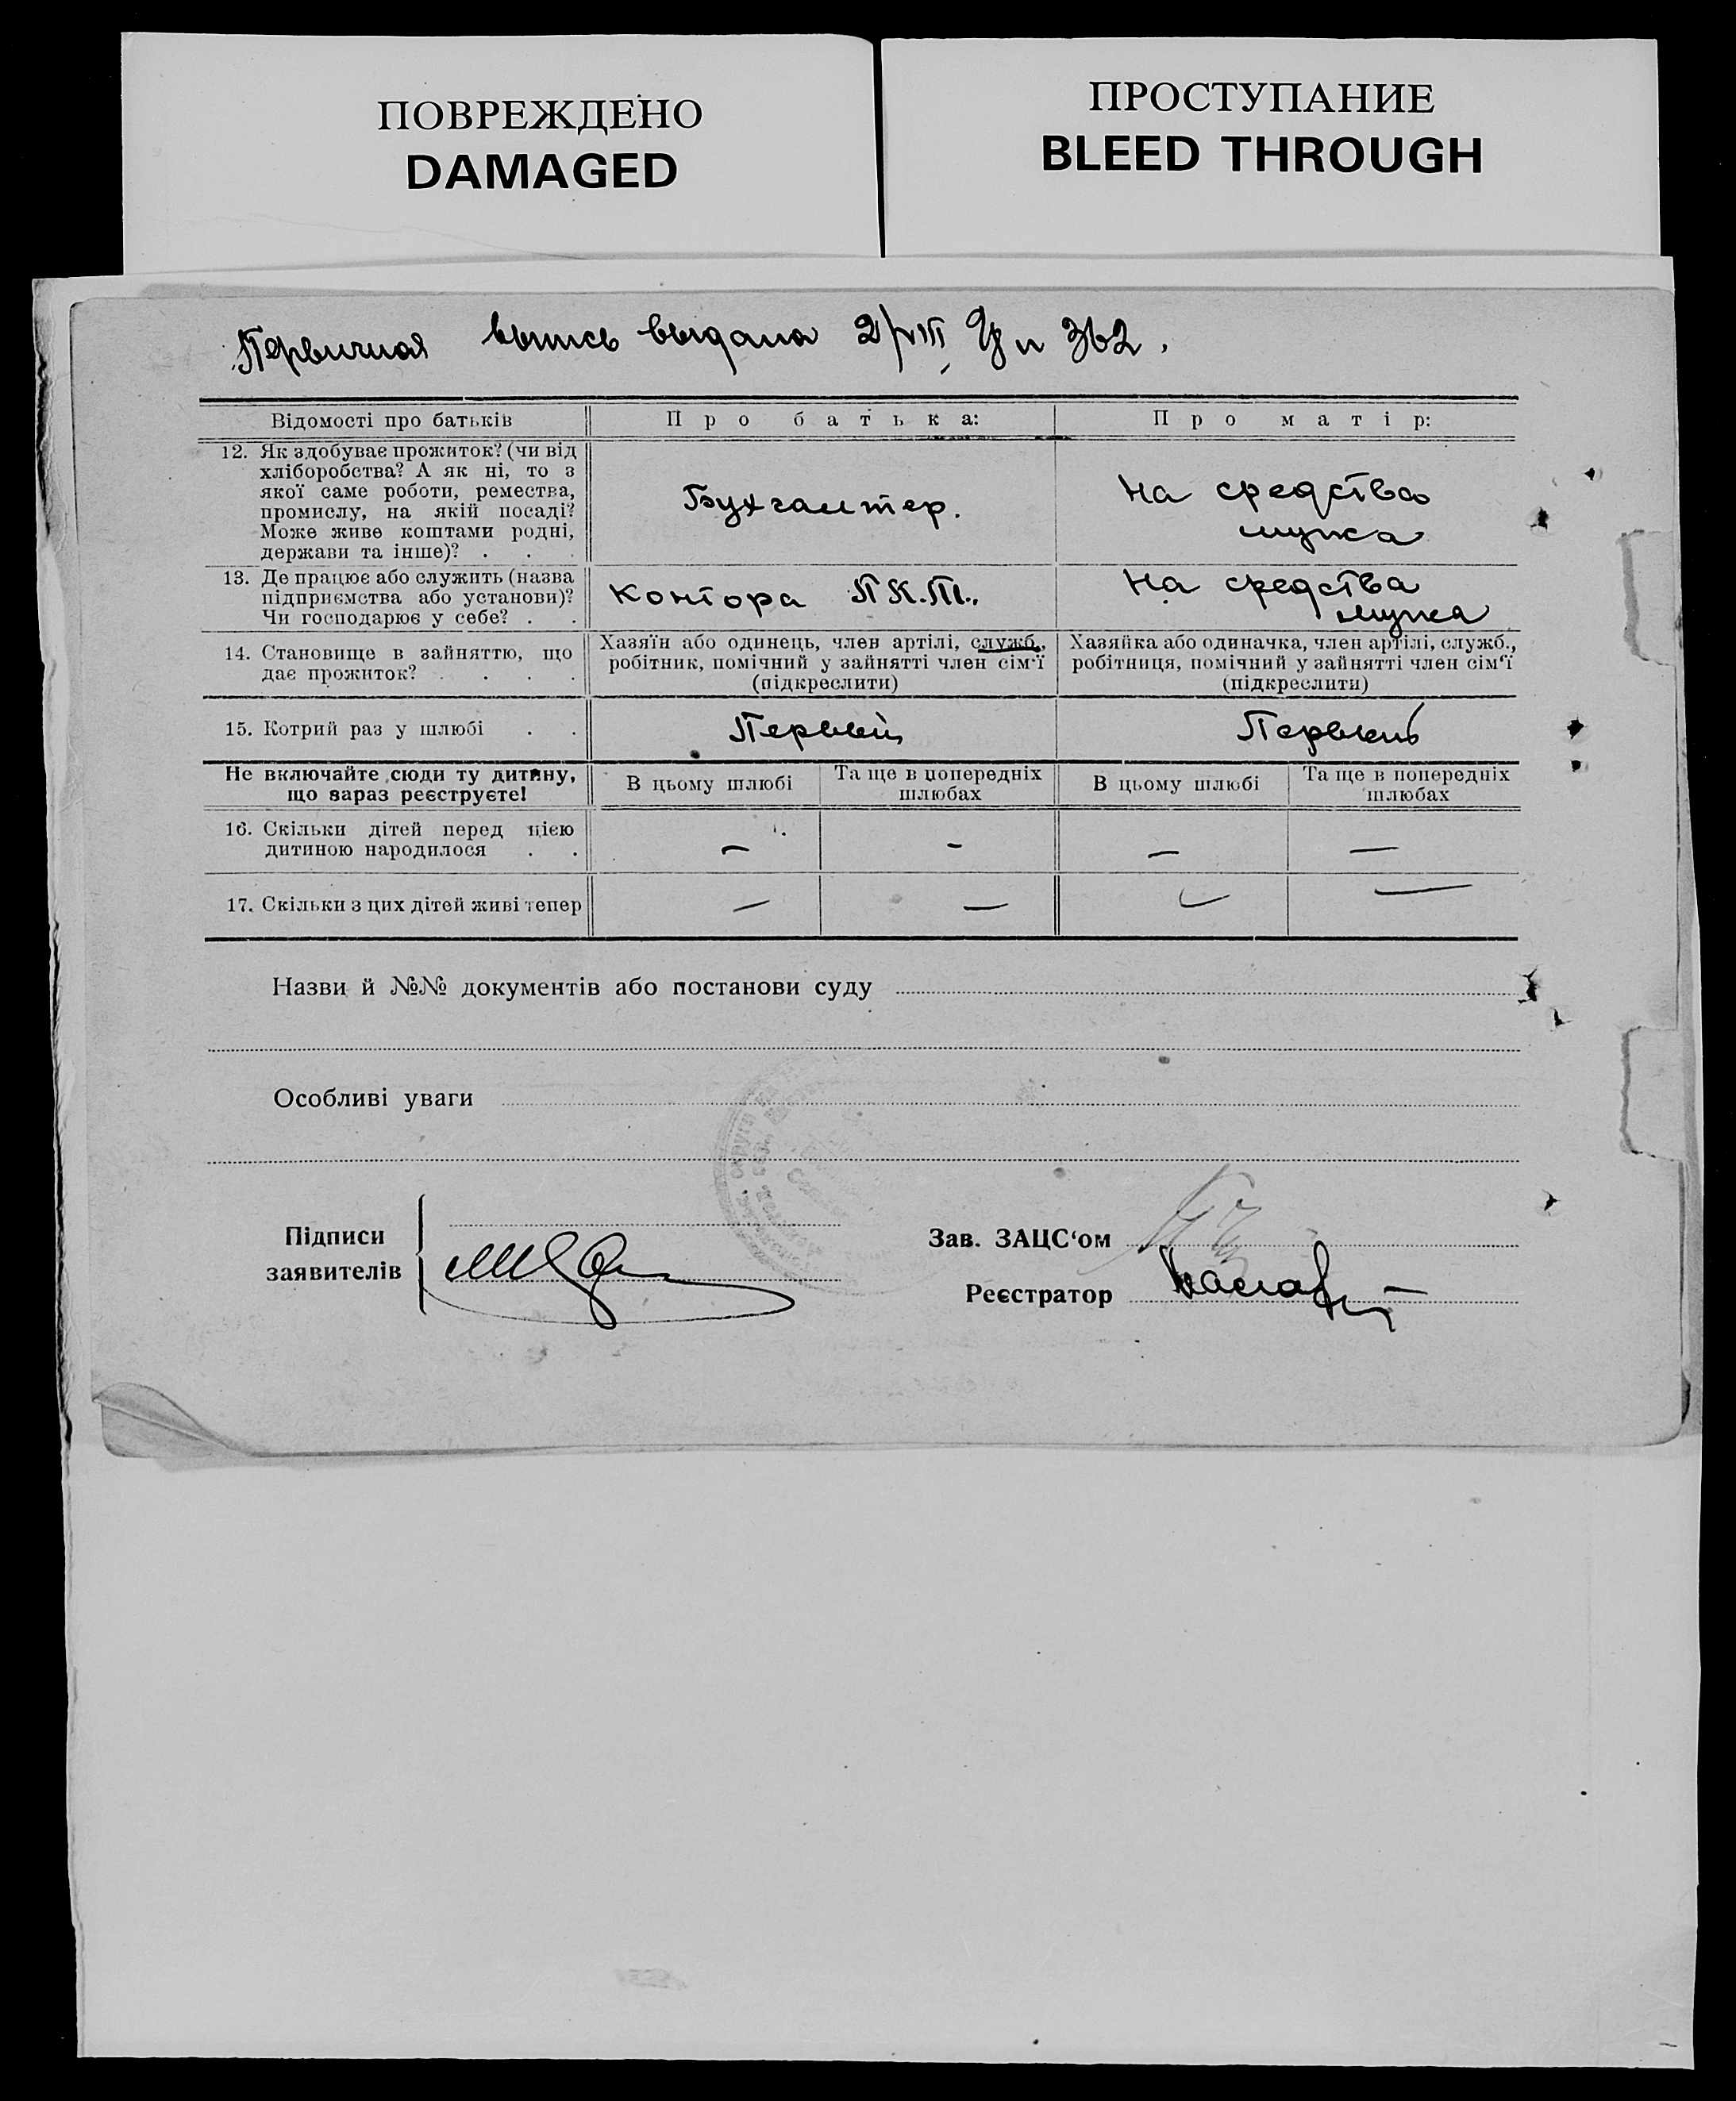 ПОВРЕЖДЕНО
DAMAGED
ПРОСТУПАНИЕ
BLEED THROUGH
Первичная выпись выдана 2/VIII № 362.
Відомості про батьків
Про батька:
Про матір:
12. Як здобуває прожиток? (чи від
хліборобства? А як ні, то з
якої саме роботи, ремества,
промислу, на якій посаді?
Може живе коштами родні,
держави та інше)? . . .
Бухгалтер.
На средства
мужа
13. Де працює або служить (назва
підприємства або установи)?
Чи господарює у себе? . .
Контора П.К.П.,
На средства
мужа
14. Становище в зайняттю, що
дає прожиток? . . . .
Хазяїн або одинець, член артілі, служб.,
робітник, помічний у зайнятті член сім'ї
(підкреслити)
Хазяйка або одиначка, член артілі, служб.,
робітниця, помічний у зайнятті член сім'ї
(підкреслити)
15. Котрий раз у шлюбі . .
Первый
Первый
Не включайте сюди ту дитину,
що зараз реєструєте!
В цьому шлюбі
Та ще в попередніх
шлюбах
В цьому шлюбі
Та ще в попередніх
шлюбах
16. Скільки дітей перед цією
дитиною народилося . .
— — — —
17. Скільки з цих дітей живі тепер
— — — —
Назви й №№ документів або постанови суду
Особливі уваги
Підписи
заявителів
Зав. ЗАЦС'ом
Реєстратор